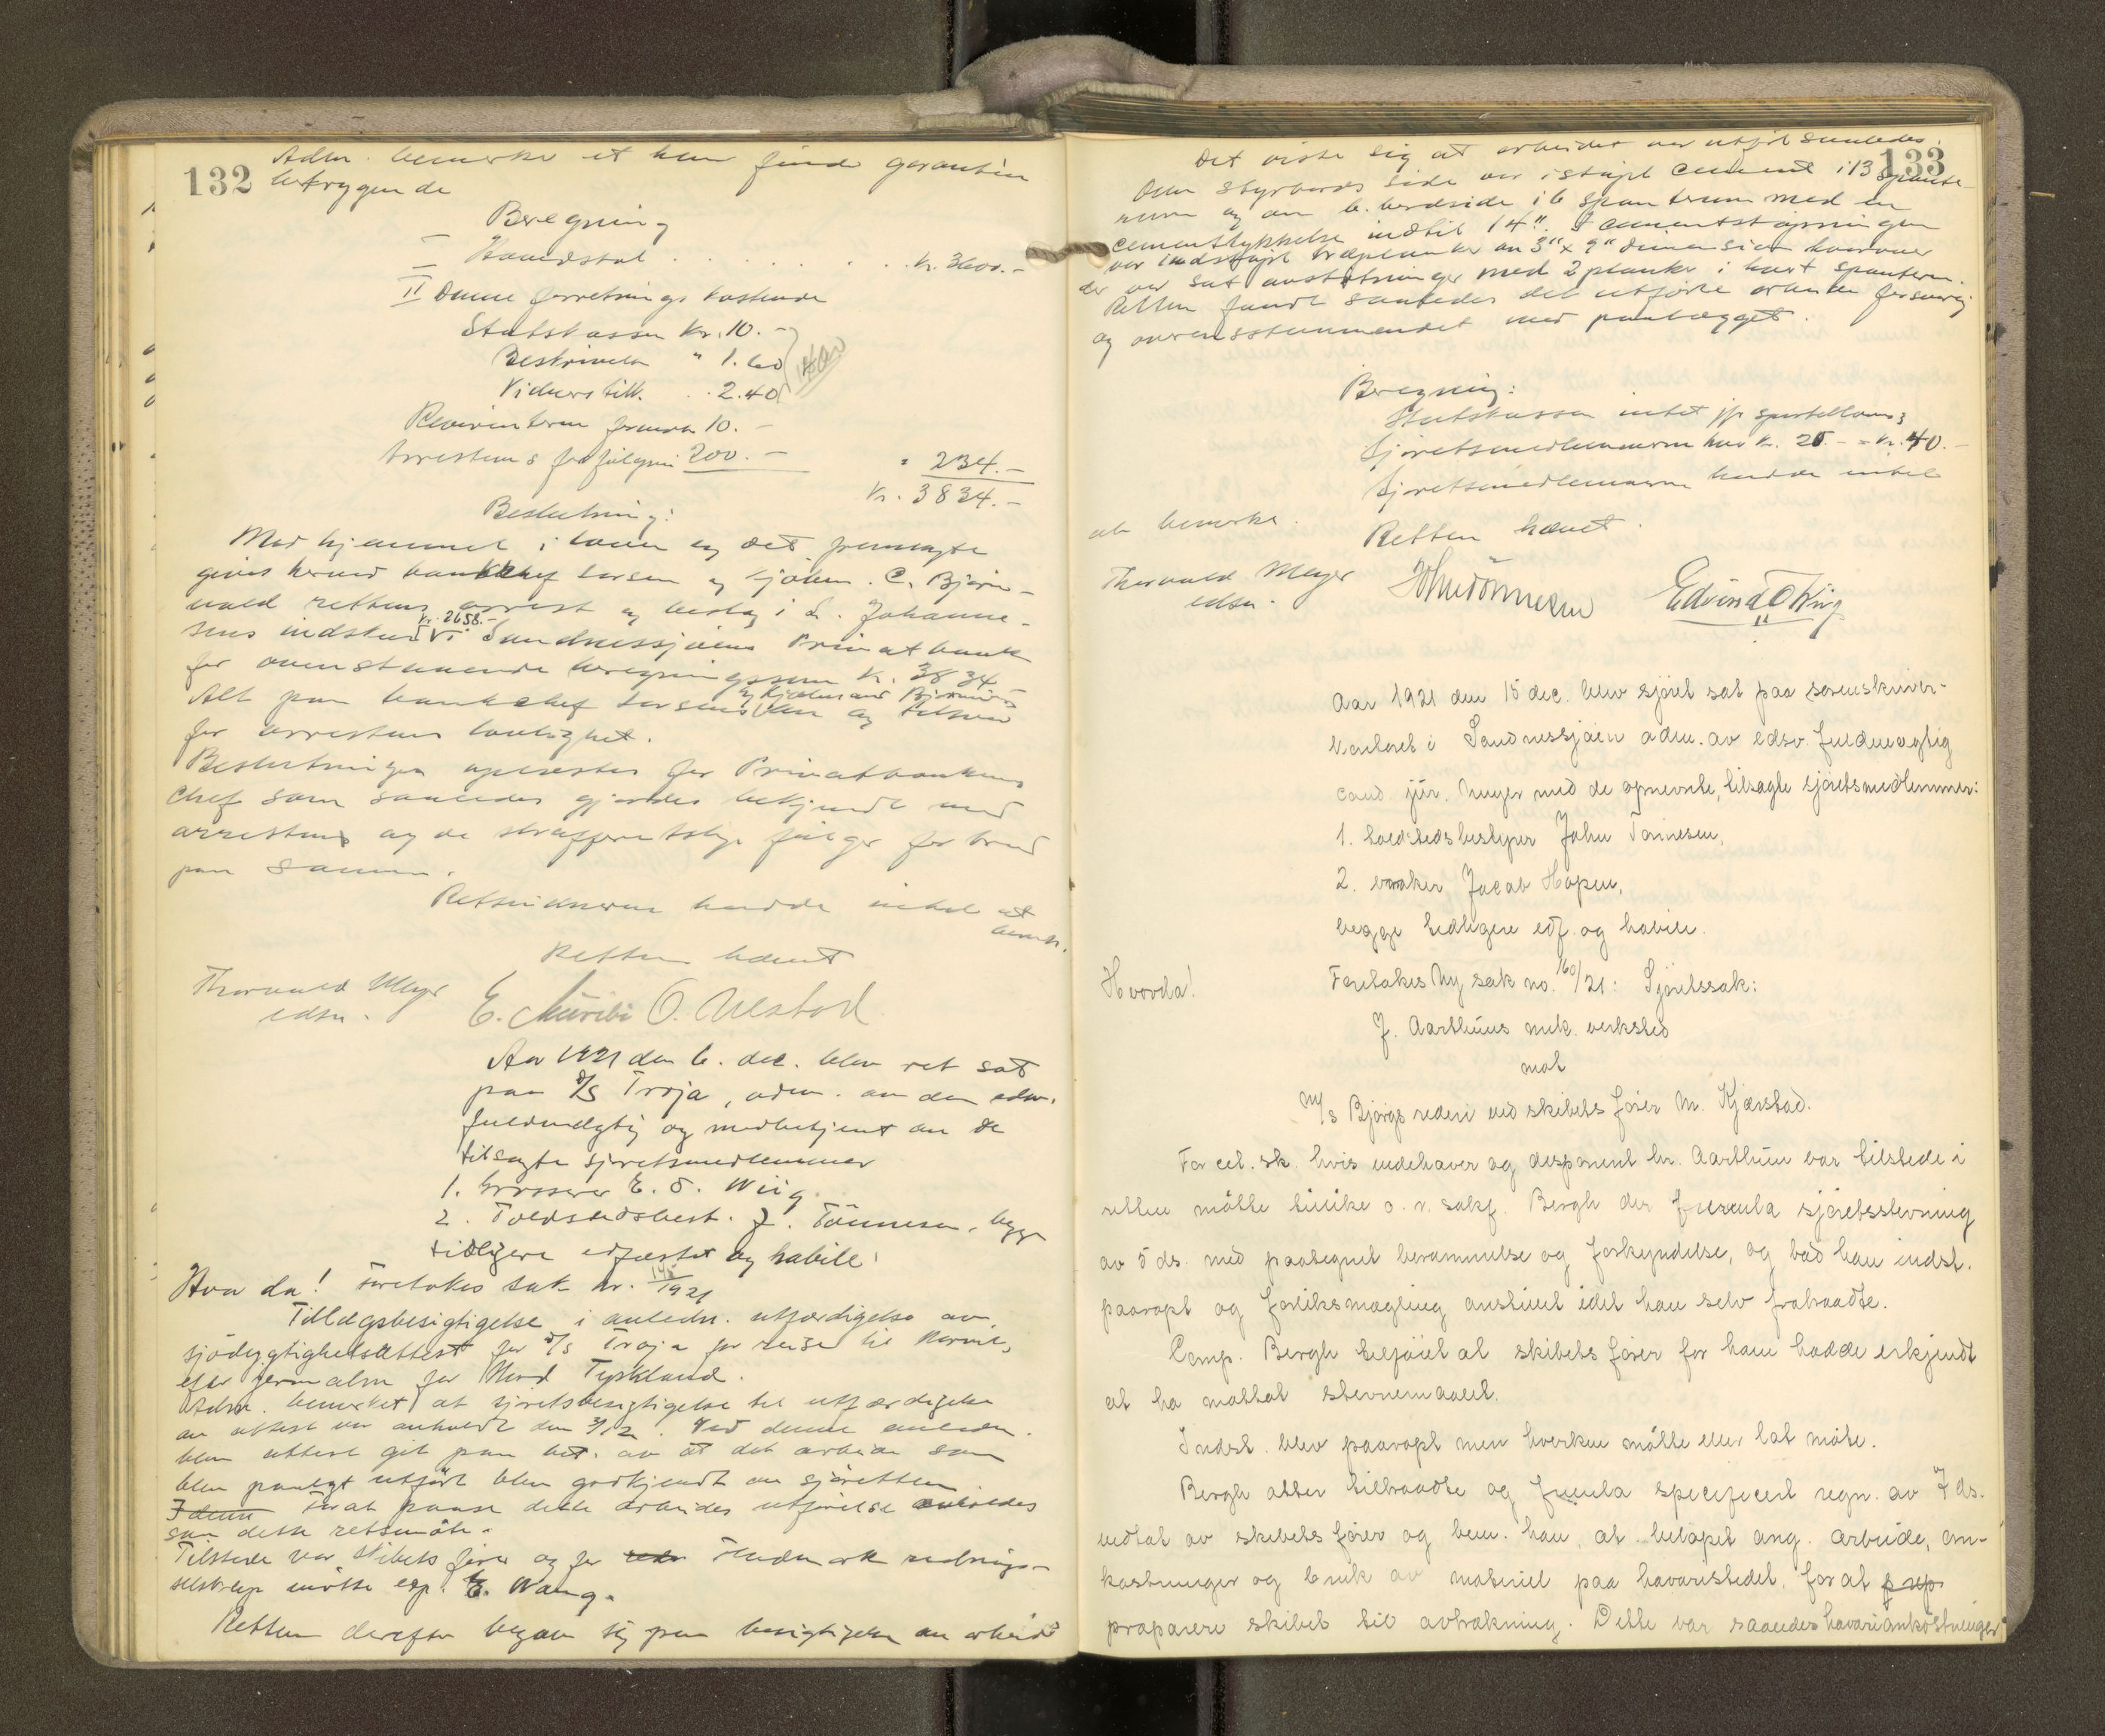 132
Adm. bemerke at han finde garantien
betryggende
Beregning
I Hovedstol . . . . . . . kr. 3600.-
II Denne forretnings kostende
Statskassen kr. 10.-
Beskrivelse " 1.60
Vidners till. . . 2.40
14.00
Rekvirenten forman 10.-
Arrestens forfølgni 200.-
" 234.-
kr. 3834.-
Beslutning:
Med hjemmel i loven og det fremlagte
gives herved bankchef Larsen og kjøbm. C. Bjørn-
vald rettens arrest og beslag i L. Johanne-
kr. 2658.-
sens indskud i Sandnessjøens Privatbank
for ovenstaaende beregningssum kr. 3834
og Kjøbmand Bjørn
Alt paa bankchef Larsens ang og tilsvar
for arrestens lovlighet.
Beslutningen oplæstes for Privatbankens
chef som saaledes gjordes bekjendt med
arresten og de strafferetslige følger for brud
paa samme.
Retsvidnerne hadde intet at
bem.
Retten hævet
Thorvald Meyer
edsv.
E. O. Ulstad
Aar 1921 den 6. dec. blev ret sat
paa D/S Troja, adm. av den edsv.
fuldmægtig og medbetjent av de
tilsagte sjøretsmedlemmer
1. Grosserer E. O. Wiig
2. Toldstedsbest. J. Tønnesen, begge
tidligere edfæstet og habile.
Hvor da! Foretokes sak nr. /1921
Tillægsbesigtigelse i anledn. utfærdigelse av
sjødygtighetsattest for D/S Troja for reise til Narvik,
efter jernmalm for Nord Tyskland.
Adm. bemerket at sjøretsbesigtigelse til utfærdigelse
av attest var anholdt den 3/12. Ved denne anledn.
blev attest git paa bet. av at det arbeide som
blev paalagt utført blev godkjendt av sjøretten
For at paase dette arbeides utførelse anholdes
som dette retsmøte.
Tilstede var skibets fører og for rednings-
selskap møtte exp. E. Wang.
Retten derefter begav sig paa besigtigelse av arbeide
133
Det viste sig at arbeidet var utført saaledes:
Den styrbords side var istøpt cement i 13 spante-
rum og om b.bordside i 6 spanterum med en
cementtykkelse indtil 14". I cementstøpningen
var indstøpt træplanker av 3" x 9" dimension hvorover
der var sat avstøtninger med 2 planker i hvert spanterum.
Retten fandt saaledes det utførte arbeide forsvarlig
og overensstemmendet med paalægget.
Beregning:
Statskassen intet jfr sportelloven
Sjøretsmedlemmerne hver kr. 20.- = kr. 40.-
Sjøretsmedlemmerne hadde intet
at bemerke.
Retten hævet.
Thorvald Meyer
edsv.
John Tønnesen
Edvind O Wiig
Aar 1921 den 15 dec. blev sjøret sat paa sorenskriver-
kontoret i Sandnessjøen adm. av edsv. fuldmægtig
cand jur. Meyer med de opnevnte, tilsagte sjøretsmedlemmer:
1. toldstedsbestyrer John Tønnesen,
2. vraker Jacob Hopen,
begge tidligere edf. og habile.
Hvorda!
Foretokes Ny sak no. 160/21: Sjøretssak:
J. Aarthuns mek. verksted
mot
M/s Bjørgs rederi ved skibets fører M. Kjærstad.
For cit. sk. hvis indehaver og disponent hr. Aarthun var tilstede i
retten møtte tillike o. r. sakf. Bergh der fremla sjøretsstevning
av 5 ds. med paategnet berammelse og forkyndelse, og bad han indst.
paaropt og forliksmægling anstillet idet han selv fratraadte.
Comp. Bergh tilføiet at skibets fører for ham hadde erkjendt
at ha mottat stevnemaalet.
Indst. blev paaropt men hverken møtte eller lot møte.
Bergh atter tiltraadte og fremla specificert regn. av 7 ds.
vedtat av skibets fører og bem. han at beløpet ang. arbeide, om-
kostninger og bruk av materiel paa havaristedet, for at
præparere skibet til avtrækning. Dette var saaledes havariomkostninger